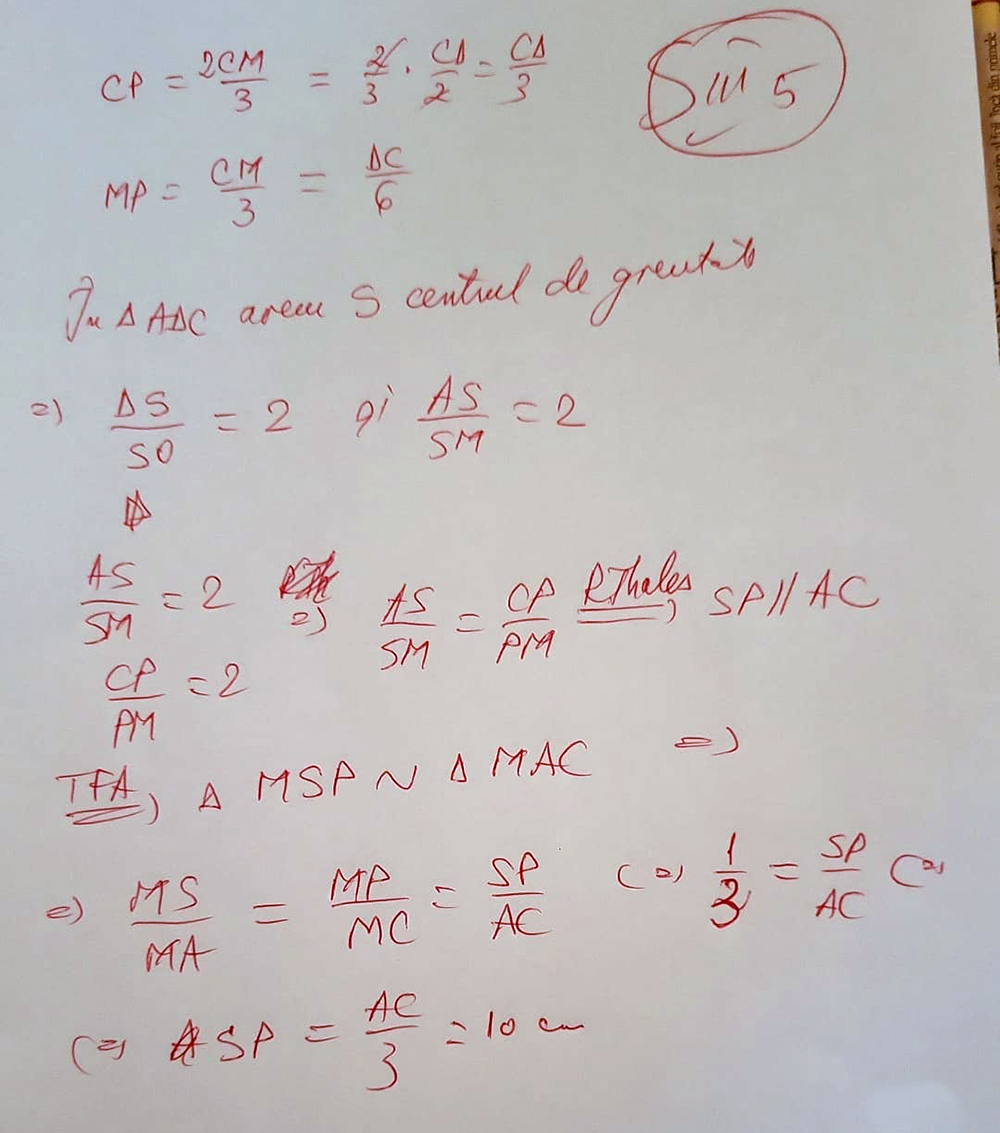 CP = 2CM/3 = 2/3 · CD/2 = CD/3
Sm 5
MP = CM/3 = DC/6
În Δ ADC avem S centrul de greutate
=) DS/SO = 2 și AS/SM = 2
AS/SM = 2 =) AS/SM = CP/PM RThales) SP // AC
CP/PM = 2
TFA) Δ MSP ~ Δ MAC =)
=) MS/MA = MP/MC = SP/AC (=) 1/3 = SP/AC (=)
(=) SP = AC/3 = 10 cm